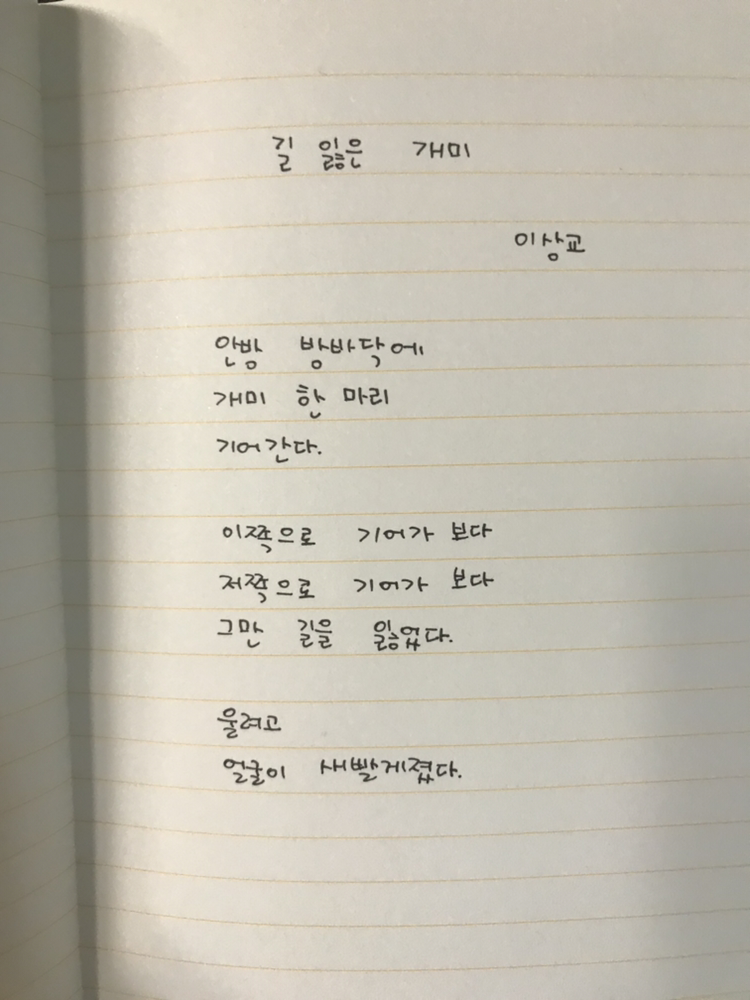 길 잃은 개미
이상교
안방 방바닥에
개미 한 마리
기어간다.
이쪽으로 기어가 보다
저쪽으로 기어가 보다
그만 길을 잃었다.
울려고
얼굴이 새빨게졌다.